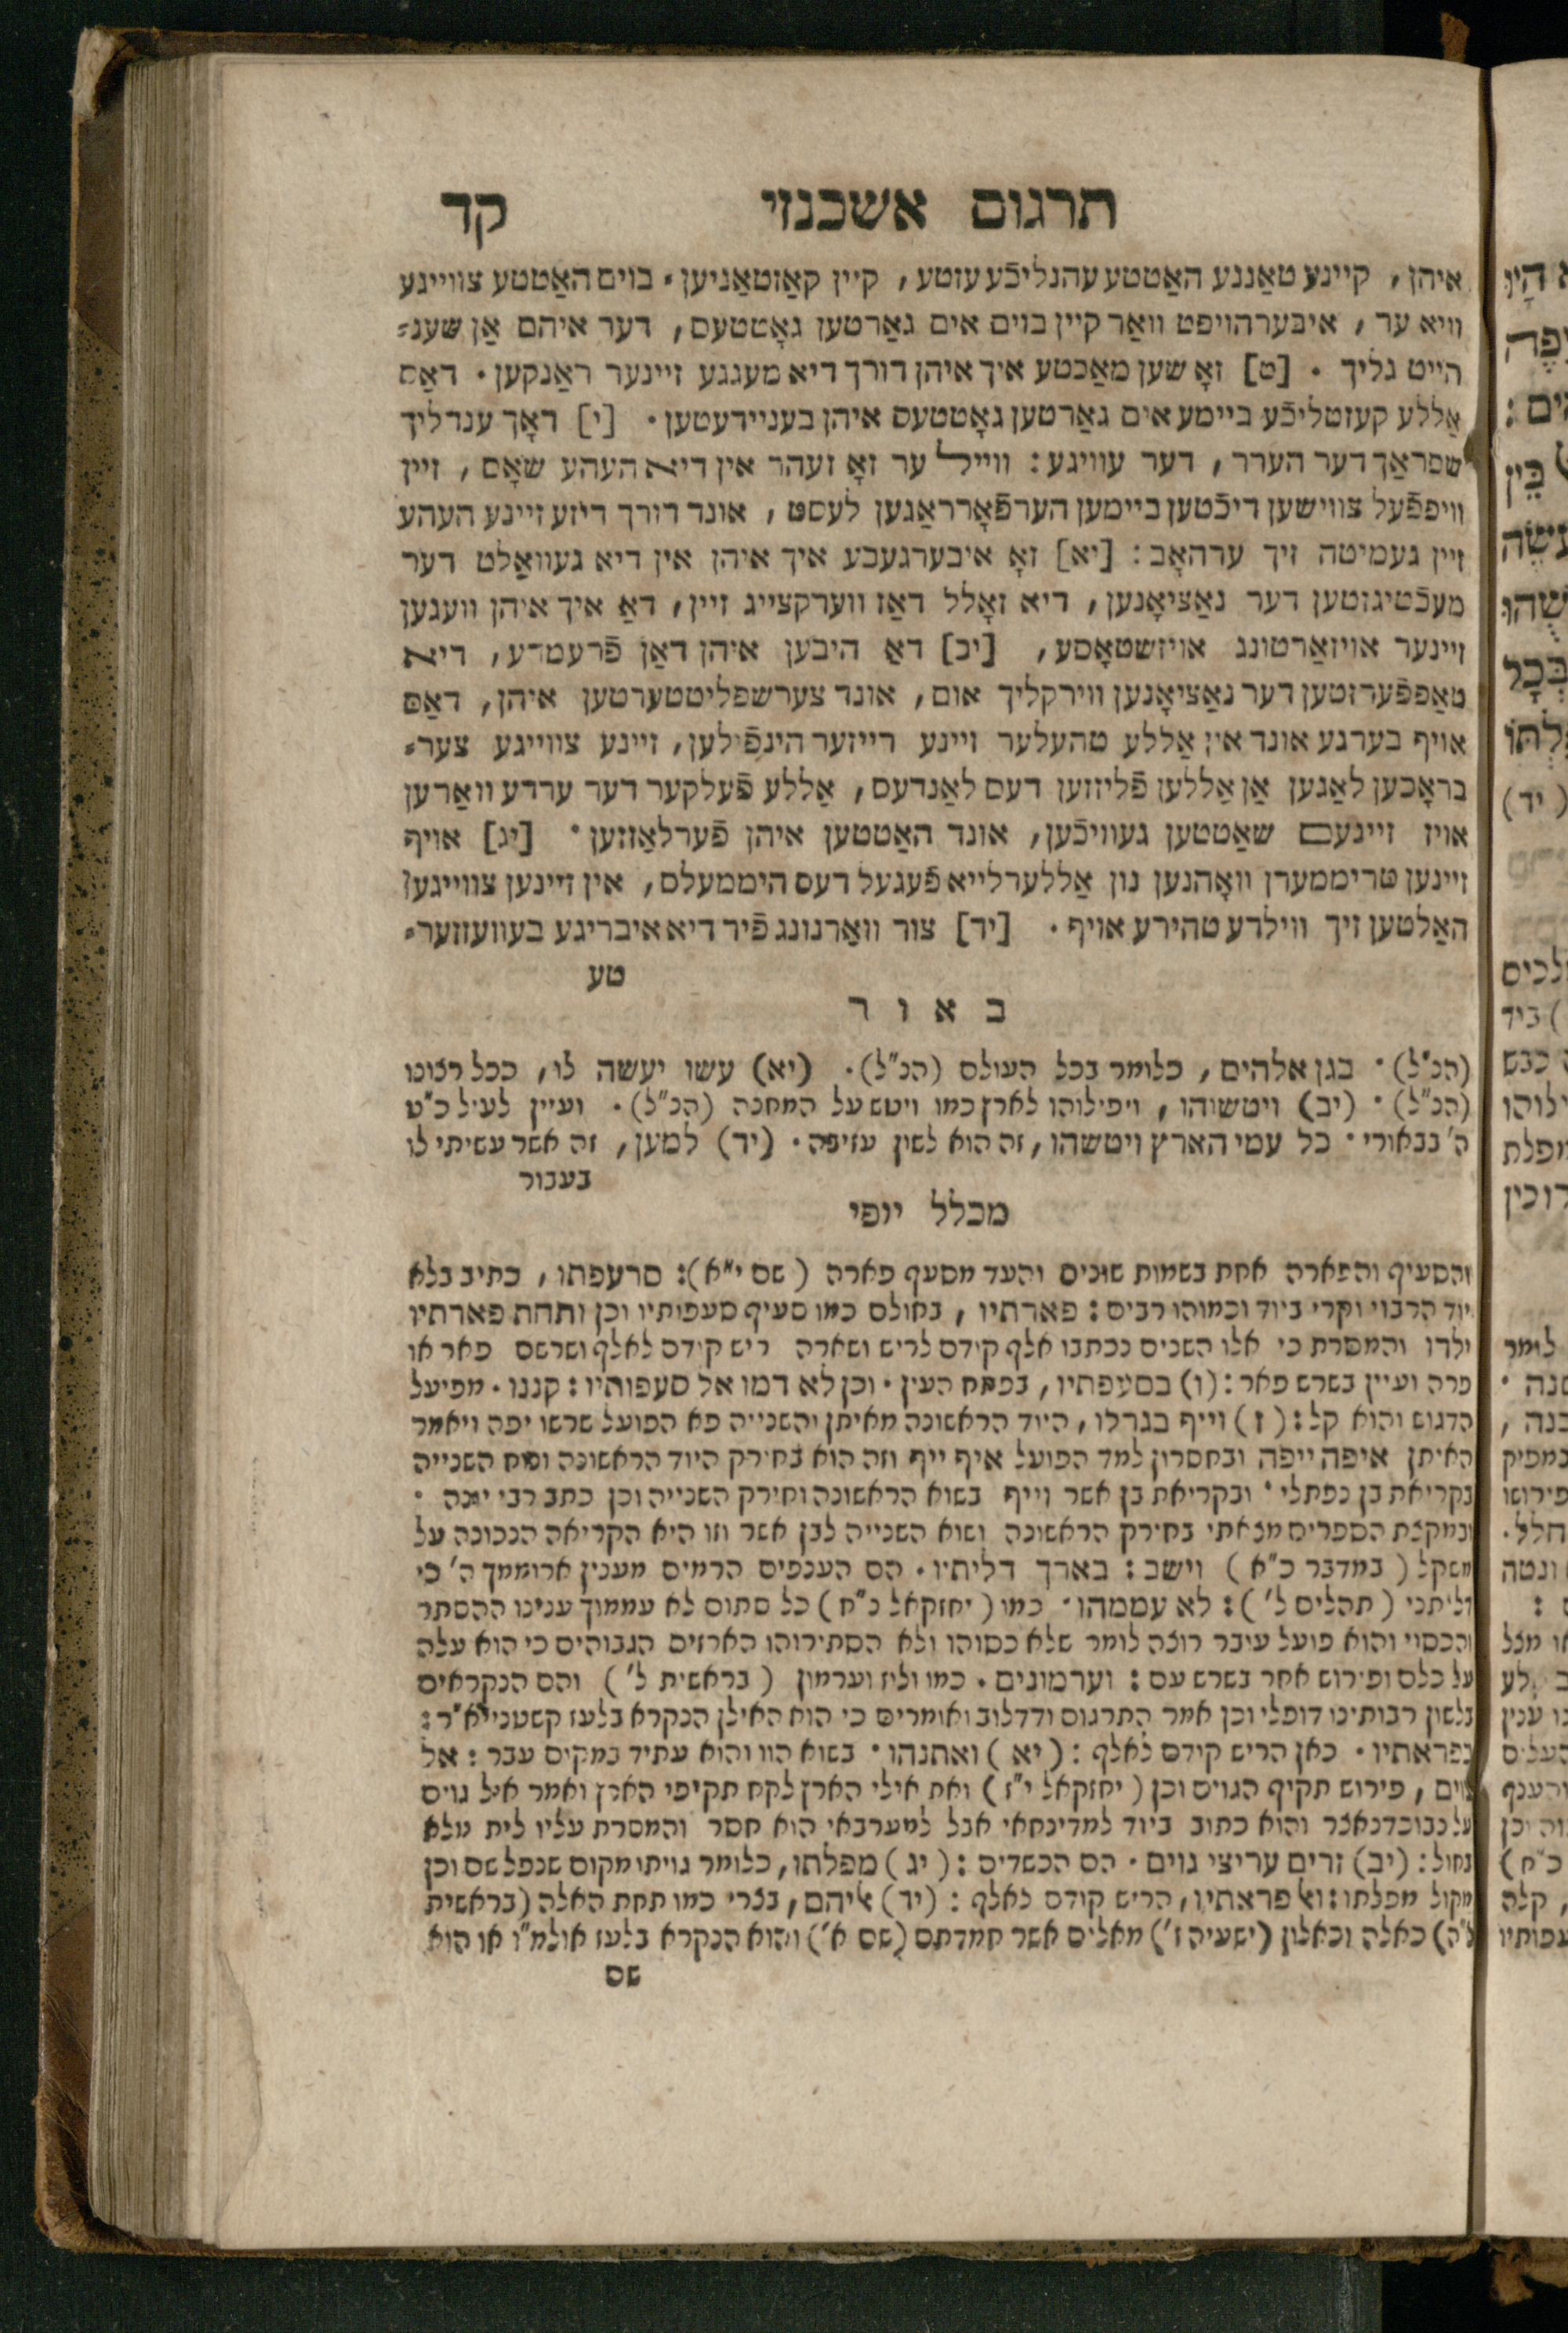 תרגום אשכנזי קד
איהן, קיינע טאַננע האַטטע עהנליכֿע עזטע, קיין קאַזטאַניען. בוים האַטטע צווייגע
וויא ער, איבערהויפט וואַר קיין בוים אים גאַרטען גאָטטעס, דער איהם אַן שענ=
הייט גליך. [ט] זאָ שען מאַכטע איך איהן דורך דיא מעגגע זיינער ראַנקען. דאַס
אַללע קעזטליכֿע ביימע אים גאַרטען גאָטטעס איהן בענײדעטען. [י] דאָך ענדליך
שפראַך דער הערר, דער עוויגע: ווייל ער זאָ זעהר אין דיא העהע שאָס, זיין
וויפפֿעל צווישען דיכֿטען ביימען הערפֿאָרראַגען לעסט, אונד דורך דיזע זיינע העהע
זיין געמיטה זיך ערהאָב: [יא] זאָ איבערגעבע איך איהן אין דיא געוואַלט דער
מעכֿטיגזטען דער נאַציאָנען, דיא זאָלל דאַז ווערקצייג זיין, דאַ איך איהן וועגען
זיינער אויזאַרטונג אויזשטאָסע, [יב] דאַ היבען איהן דאַן פֿרעמדע, דיא
טאַפפֿערזטען דער נאַציאָנען ווירקליך אום, אונד צערשפליטטערטען איהן, דאַס
אויף בערגע אונד אין אַללע טהעלער זיינע רייזער הינפֿילען, זיינע צווייגע צער=
בראָכען לאַגען אַן אַללען פֿליזזען דעס לאַנדעס, אַללע פֿעלקער דער ערדע וואַרען
אויז זיינעם שאַטטען געוויכֿען, אונד האַטטען איהן פֿערלאַזזען. [יג] אויף
זיינען טריממערן וואָהנען נון אַללערלייא פֿעגעל דעס היממעלס, אין זיינען צווייגען
האַלטען זיך ווילדע טהירע אויף. [יד] צור וואַרנונג פֿיר דיא איבריגע בעוועזזער=
טע
באור
(הנ"ל). בגן אלהים, כלומר בכל העולם (הנ"ל). (יא) עשו יעשה לו, ככל רצונו
(הנ"ל). (יב) ויטשוהו, ויפילוהו לארץ כמו ויטש על המחנה (הנ"ל). ועיין לעיל כ"ט
ה' בבאורי. כל עמי הארץ ויטשהו, זה הוא לשון עזיבה. (יד) למען, זה אשר עשיתי לו
בעבור
מכלל יופי
והסעיף והפארה אחת בשמות שונים והעד מסעף פארה (שם י"א): סרעפתו, כתיב בלא
יוד הרבוי וקרי ביוד וכמוהו רבים: פארתיו, בחולם כמו סעיף סעפותיו וכן ותחת פארתיו
ילדו והמסרת כי אלו השנים נכתבו אלף קודם לריש ושארה ריש קודם לאלף ושרשם פאר או
פרה ועיין בשרש פאר: (ו) בסעפתיו, בפתח העין. וכן לא דמו אל סעפותיו: קננו. מפיעל
הדגוש והוא קל: (ז) וייף בגדלו, היוד הראשונה מאיתן והשנייה פא הפועל שרשו יפה ויאמר
האיתן איפה ייפה ובחסרון למד הפועל איף ייף וזה הוא בחירק היוד הראשונה ופתח השנייה
בקריאת בן נפתלי. ובקריאת בן אשר וייף בשוא הראשונה וחירק השנייה וכן כתב רבי יונה.
ובמקצת הספרים מצאתי בחירק הראשונה ושוא השנייה לבן אשר וזו היא הקריאה הנכונה על
משקל (במדבר כ"א) וישב: בארך דליתיו. הם הענפים הרמים מענין ארוממך ה' כי
דליתני (תהלים ל'): לא עממהו. כמו (יחזקאל כ"ח) כל סתום לא עממוך ענינו ההסתר
והכסוי והוא פועל עיבר רוצה לומר שלא כסוהו ולא הסתירוהו הארזים הגבוהים כי הוא עלה
על כלם ופירוש אחר בשרש עם: וערמונים. כמו ולוז וערמון (בראשית ל') והם הנקראים
בלשון רבותינו דופלי וכן אמר התרגום ודדלוב ואומרים כי הוא האילן הנקרא בלעז קשטנייא"ר:
בפראתיו. כאן הריש קודם לאלף: (יא) ואתנהו. בשוא הוו והוא עתיד במקום עבר: אל
גוים, פירוש תקיף הגוים וכן (יחזקאל י"ז) ואת אילי הארץ לקח תקיפי הארץ ואמר איל גוים
על נבוכדנאצר והוא כתוב ביוד למדינחאי אבל למערבאי הוא חסר והמסרת עליו לית מלא
בחול: (יב) זרים עריצי גוים. הם הכשדים: (יג) מפלתו, כלומר גויתו מקום שנפל שם וכן
מקול מפלתו: ואל פראתיו, הריש קודם לאלף: (יד) אליהם, בצרי כמו תחת האלה (בראשית
ל"ה) כאלה וכאלון (ישעיה ז') מאלים אשר חמדתם (שם א') והוא הנקרא בלעז אולמ"ו או הוא
שם